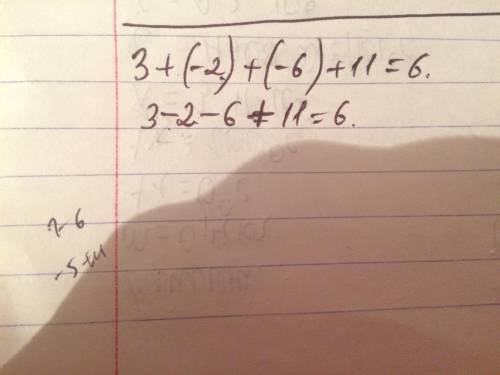 3+(-2)+(-6)+11=6.
3-2-6+11=6.
1-6
-5+11